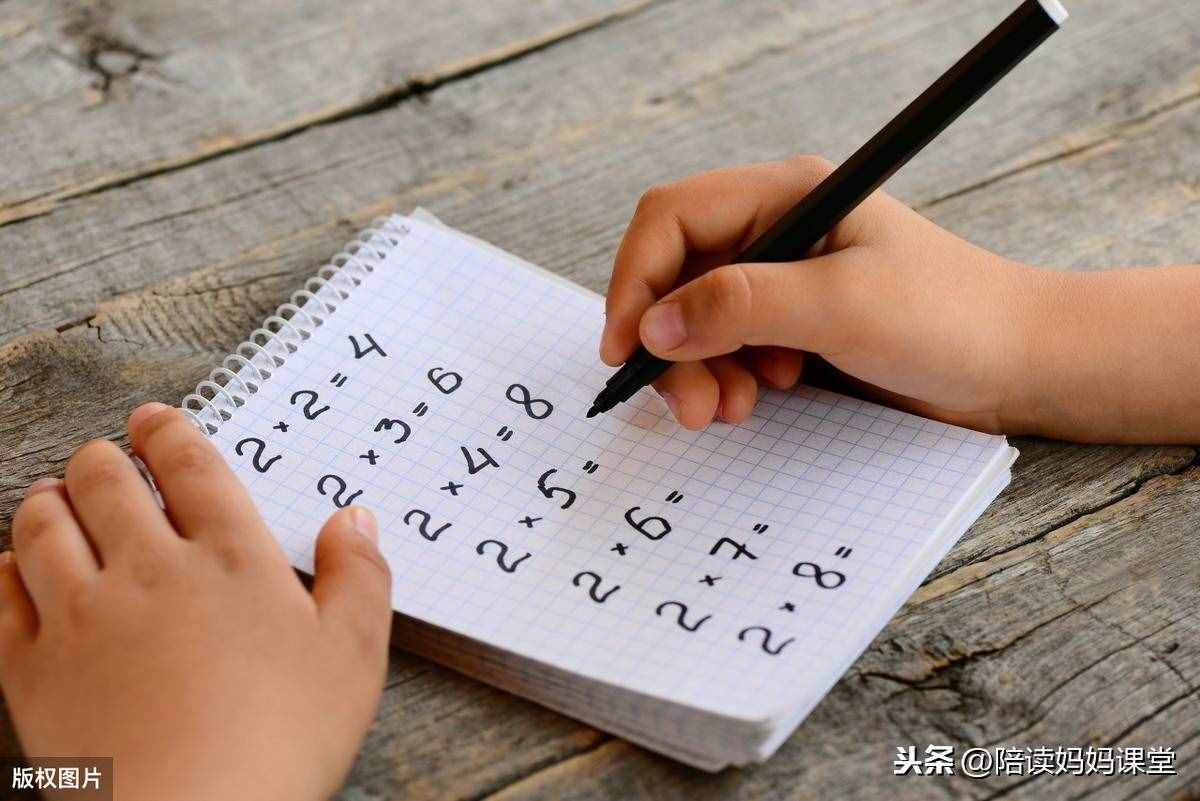 2 × 2 = 4
2 × 3 = 6
2 × 4 = 8
2 × 5 =
2 × 6 =
2 × 7 =
2 × 8 =
版权图片
头条 @陪读妈妈课堂